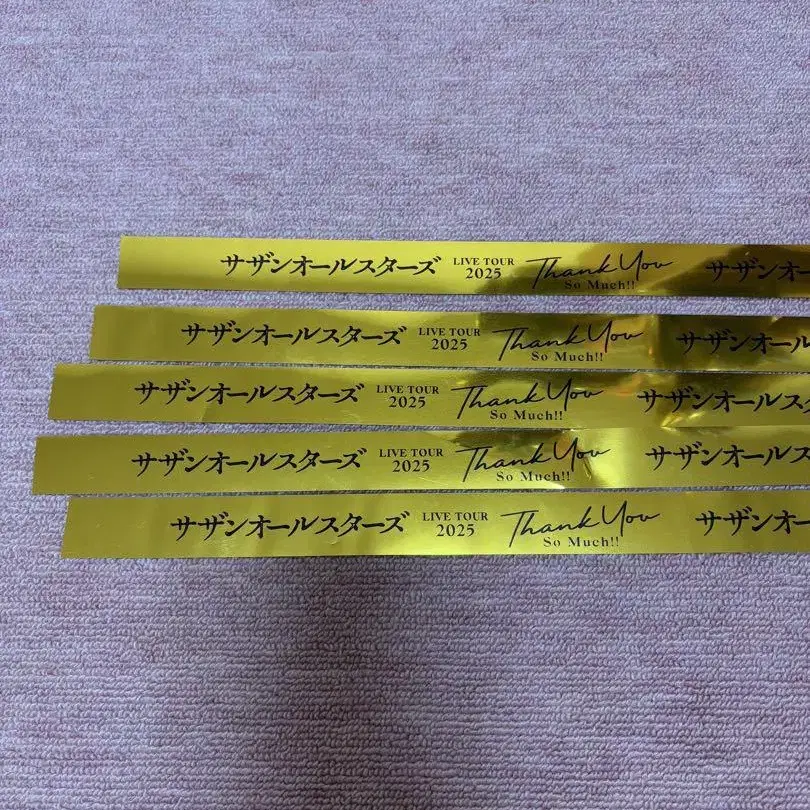 サザンオールスターズ LIVE TOUR 2025 Thank You So Much!! サザンオー
サザンオールスターズ LIVE TOUR 2025 Thank You So Much!! サザンオール
サザンオールスターズ LIVE TOUR 2025 Thank You So Much!! サザンオールス
サザンオールスターズ LIVE TOUR 2025 Thank You So Much!! サザンオールス
サザンオールスターズ LIVE TOUR 2025 Thank You So Much!! サザンオー